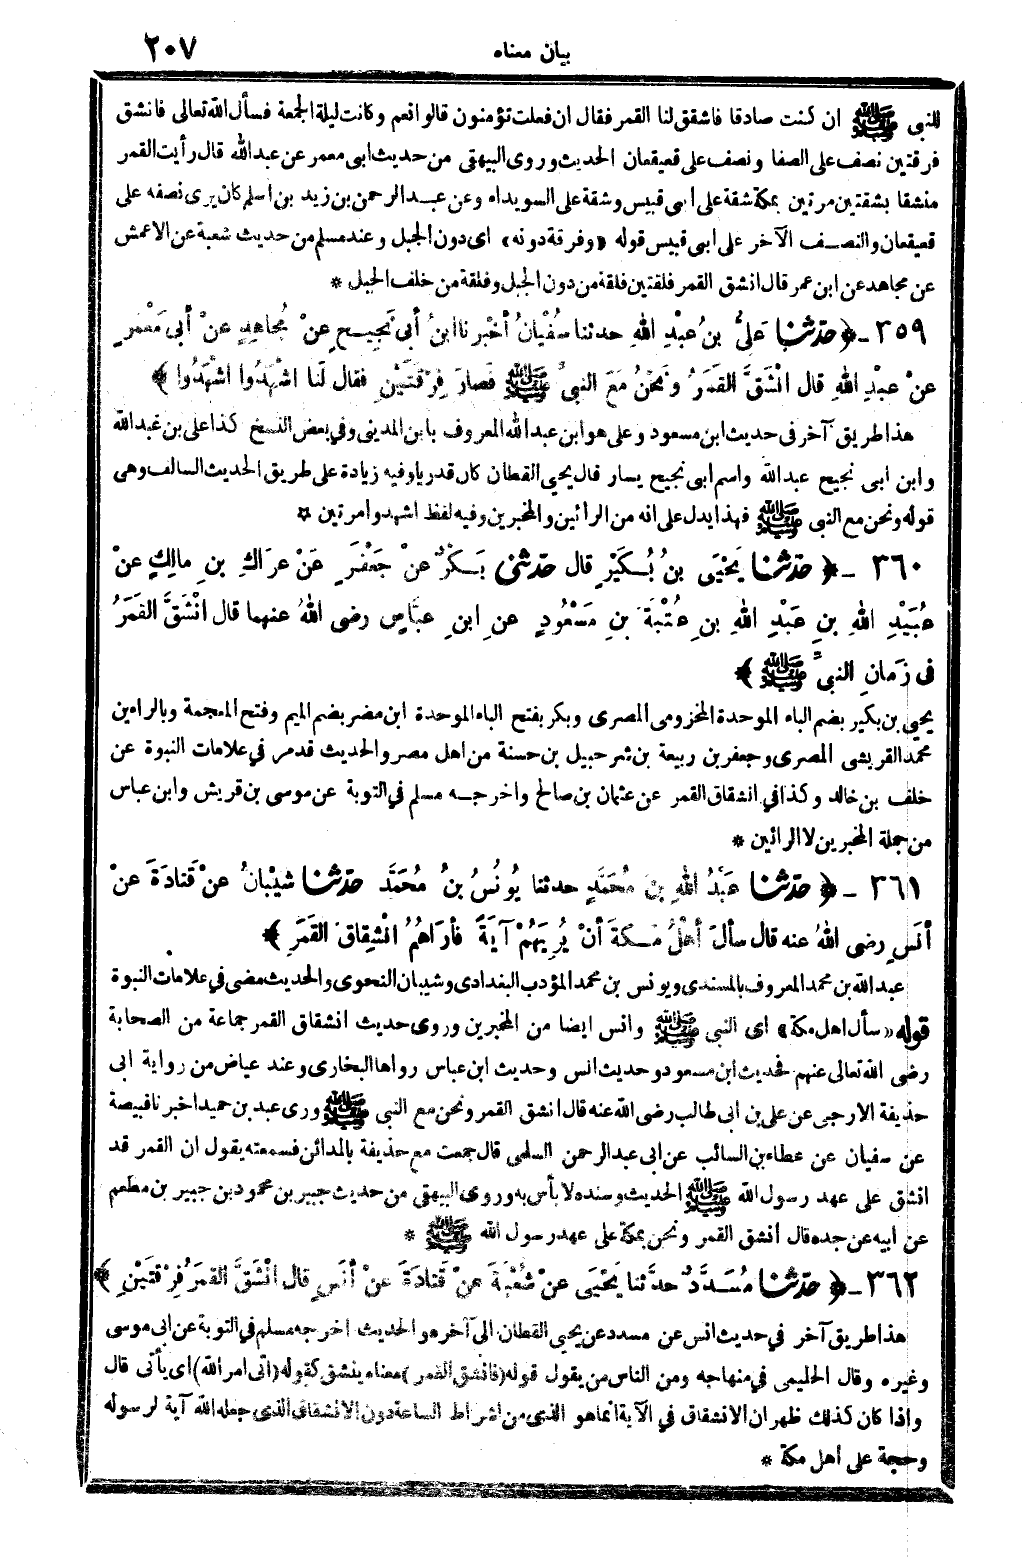 بيان معناه ٢٠٧
للنبي ﷺ ان كنت صادقا فاشقق لنا القمر فقال ان فعلت تؤمنون قالوا نعم وكانت ليلة الجمعة فسأل الله تعالى فانشق
فرقتين نصف على الصفا ونصف على قعيقعان الحديث وروى البيهقي من حديث ابى معمر عن عبدالله قال رأيت القمر
منشقا بشقتين مرتين بمكة شقة على ابى قبيس وشقة على السويداء وعن عبد الرحمن بن زيد بن اسلم كان يرى نصفه على
قعيقعان والنصف الآخر على ابى قبيس قوله «وفرقة دونه» اى دون الجبل وعند مسلم من حديث شعبة عن الاعمش
عن مجاهد عن ابن عمر قال انشق القمر فلقتين فلقة من دون الجبل وفلقة من خلف الجبل *
٣٥٩ ـ ﴿ حدثنا عَلِيُّ بنُ عبْدِ اللهِ حدثنا سُفْيانُ أخْبرنا ابنُ أبي نَجِيحٍ عنْ مُجاهِدٍ عنْ أبي مَعْمَرٍ
عنْ عبْدِ اللهِ قال انْشَقَّ القَمَرُ ونَحْنُ مَعَ النبيِّ ﷺ فَصارَ فِرْقَتَيْنِ فقال لَنا اشْهَدُوا اشْهَدُوا ﴾
هذا طريق آخر فى حديث ابن مسعود وعلى هو ابن عبدالله المعروف بابن المدينى وفي بعض النسخ كذا على بن عبدالله
وابن ابى نجيح عبدالله واسم ابى نجيح يسار قال يحيى القطان كان قدريا وفيه زيادة على طريق الحديث السالف وهى
قوله ونحن مع النبى ﷺ فهذا يدل على انه من الرائين والمخبرين وفيه لفظ اشهدوا مرتين *
٣٦٠ ـ ﴿ حدثنا يَحْيَى بنُ بُكَيْرٍ قال حدثنى بَكْرٌ عنْ جَعْفَرٍ عَنْ عرَاكِ بنِ مالِكٍ عنْ
عُبَيْدِ اللهِ بنِ عَبْدِ اللهِ بنِ عُتْبَةَ بنِ مَسْعُودٍ عنِ ابنِ عبَّاسٍ رضى اللهُ عنهما قال انْشَقَّ القَمَرُ
فى زَمانِ النبيِّ ﷺ ﴾
يحيى بن بكير بضم الباء الموحدة المخزومى المصرى وبكر بفتح الباء الموحدة ابن مضر بضم الميم وفتح المعجمة وبالراء بن
محمد القريشى المصرى وجعفر بن ربيعة بن شرحبيل بن حسنة من اهل مصر والحديث قد مر في علامات النبوة عن
خلف بن خالد وكذا في انشقاق القمر عن عثمان بن صالح واخرجه مسلم في التوبة عن موسى بن قريش وابن عباس
من جملة المخبرين لا الرائين *
٣٦١ ـ ﴿ حدثنا عَبْدُ اللهِ بنُ مُحَمَّدٍ حدثنا يُونُسُ بنُ مُحَمَّدٍ حدثنا شيْبانُ عنْ قَتادَةَ عنْ
أنَسٍ رضى اللهُ عنه قال سألَ أهْلُ مَكةَ أنْ يُرِيَهُمْ آيَةً فأرَاهُمُ انْشِقاقَ القَمَرِ ﴾
عبدالله بن محمد المعروف بالمسندى ويونس بن محمد المؤدب البغدادى وشيبان النحوى والحديث مضى في علامات النبوة
قوله «سأل اهل مكة» اى النبي ﷺ وانس ايضا من المخبرين وروى حديث انشقاق القمر جماعة من الصحابة
رضى الله تعالى عنهم فحديث ابن مسعود وحديث انس وحديث ابن عباس رواها البخارى وعند عياض من رواية ابى
حذيفة الارحبى عن على بن ابى طالب رضى الله عنه قال انشق القمر ونحن مع النبي ﷺ وروى عبد بن حميد اخبرنا قبيصة
عن سفيان عن عطاء بن السائب عن ابى عبد الرحمن السلمى قال جمعت مع حذيفة بالمدائن فسمعته يقول ان القمر قد
انشق على عهد رسول الله ﷺ الحديث وسنده لا بأس به وروى البيهقي من حديث جبير بن محمود بن جبير بن مطعم
عن أبيه عن جده قال أنشق القمر ونحن بمكة على عهد رسول الله ﷺ *
٣٦٢ ـ ﴿ حدثنا مُسَدَّدٌ حدَّثنا يَحْيَى عنْ شُعْبَةَ عنْ قَتادَةَ عنْ أنَسٍ قال انْشَقَّ القَمَرُ فِرْقَتَيْنِ ﴾
هذا طريق آخر في حديث انس عن مسدد عن يحيى القطان الى آخره والحديث اخرجه مسلم في التوبة عن ابى موسى
وغيره وقال الحليمى في منهاجه ومن الناس من يقول قوله (فانشق القمر) معناه ينشق كقوله (اتى امر الله) اى يأتى قال
واذا كان كذلك ظهر ان الانشقاق في الآية انما هو الذى من اشراط الساعة دون الانشقاق الذى جعله الله آية لرسوله
وحجة على اهل مكة *